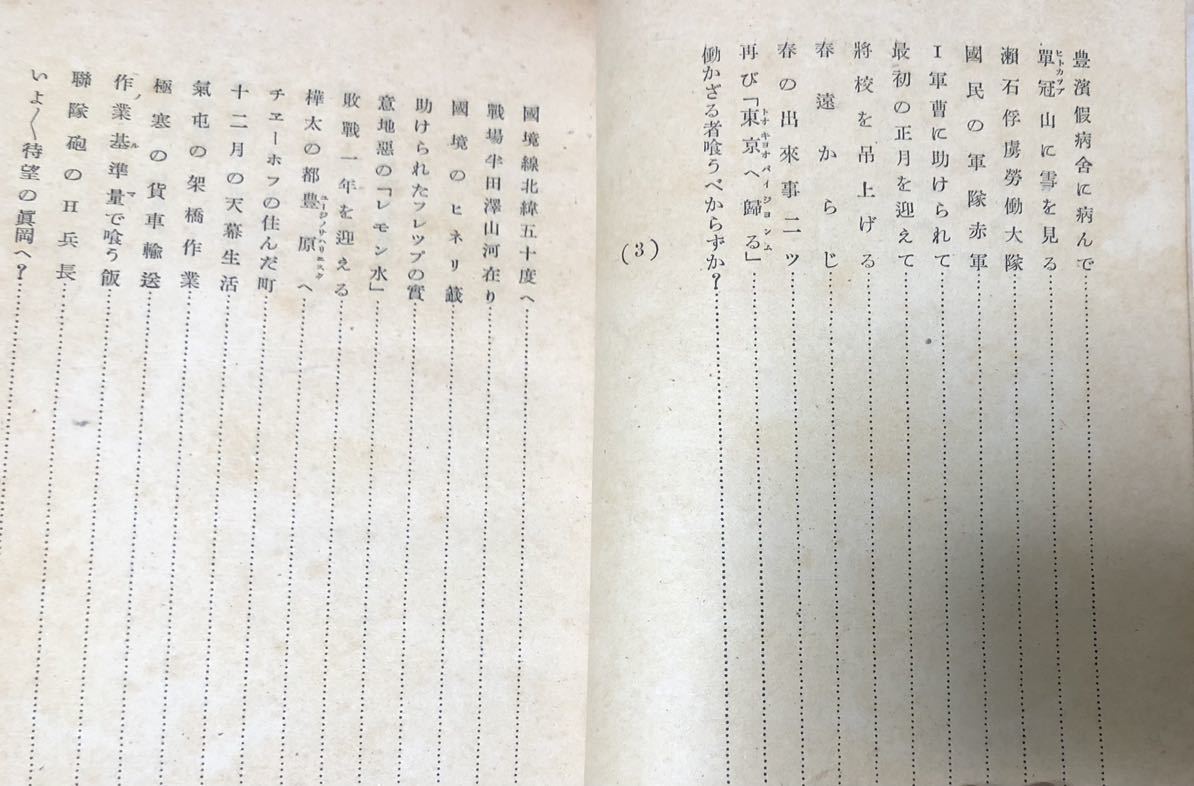 豊濱假病舍に病んで
單冠山に雪を見る
ヒトカツプ
瀨石俘虜勞働大隊
國民の軍隊赤軍
I軍曹に助けられて
最初の正月を迎えて
將校を吊上げる
春遠からじ
春の出來事二ツ
再び「東京へ歸る」
トオキヨオパイジヨンム
働かざる者喰うべからずか?
(3)
國境線北緯五十度へ
戰場半田澤山河在り
國境のヒネリ蕺
助けられたフレツプの實
意地惡の「レモン水」
敗戰一年を迎える
樺太の都豊原へ
ユージンサハリエスク
チエーホフの住んだ町
十二月の天幕生活
氣屯の架橋作業
極寒の貨車輸送
作業基準量で喰う飯
ノルマ
聯隊砲のH兵長
いよ〱待望の眞岡へ?